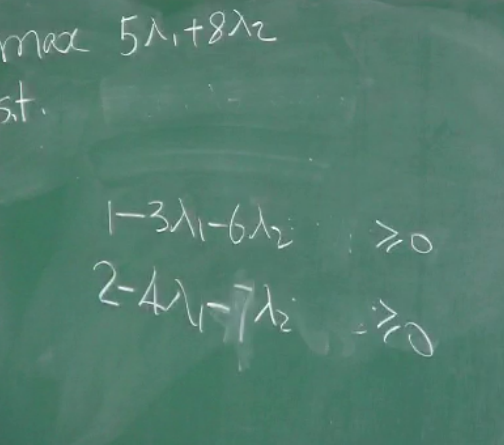 max 5λ₁+8λ₂
s.t.
1-3λ₁-6λ₂ ⩾0
2-4λ₁-7λ₂ ⩾0